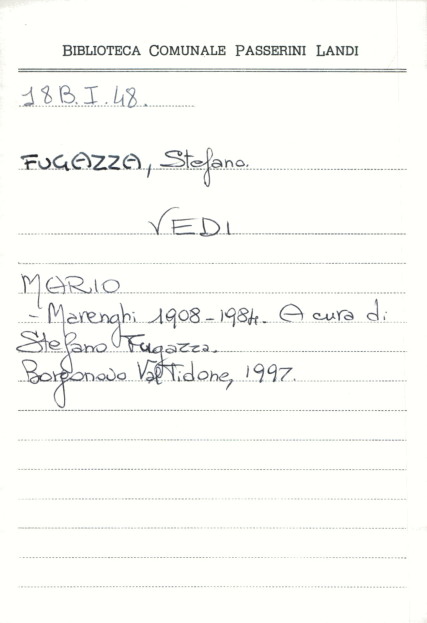 BIBLIOTECA COMUNALE PASSERINI LANDI
18B.I.48.
FUGAZZA, Stefano.
VEDI
MARIO
- Marenghi 1908-1984. A cura di
Stefano Fugazza.
Borgonovo ValTidone, 1997.